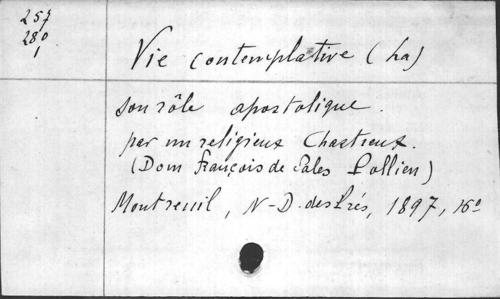 257
280
1
Vie contemplative (La)
son rôle apostolique.
par un religieux Chartreux.
(Dom François de Sales Pollien)
Montreuil, N-D. des Prés, 1897, 16°